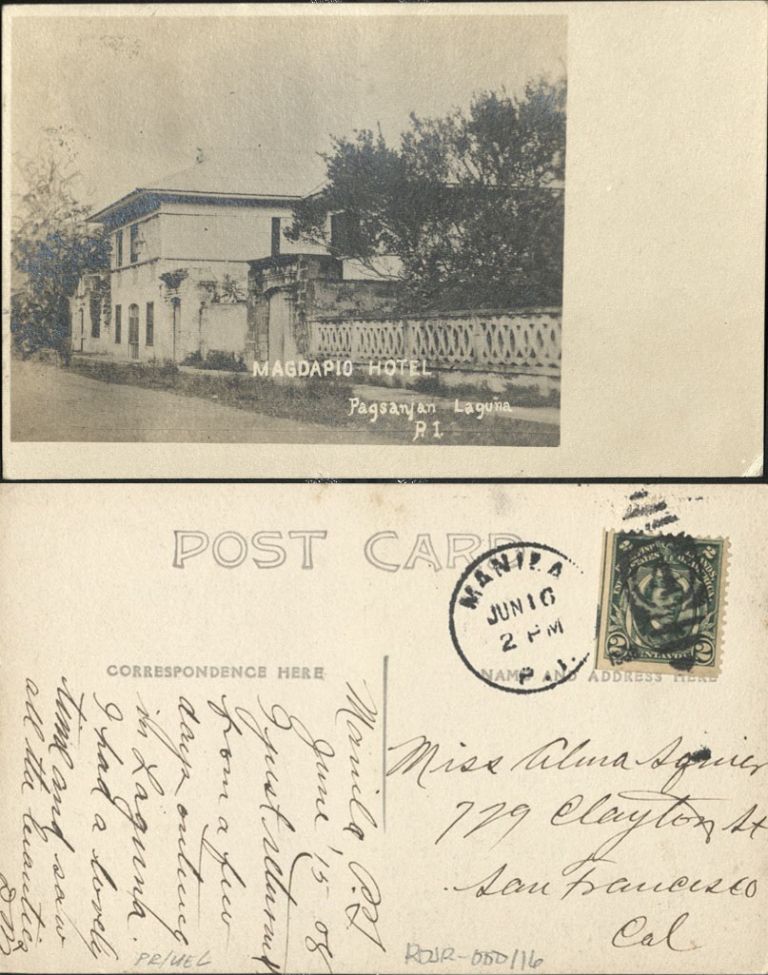 MAGDAPIO HOTEL
Pagsanjan Laguna
P.I.
POST CARD
MANILA
JUN 16
2 PM
P. I.
2 2
CORRESPONDENCE HERE
NAME AND ADDRESS HERE
Manila, P.I
June, 15 08
I just returned
from a few
days outing
in Laguna.
I had a lovely
time and saw
all the beauties
Miss Alma Squier
779 Clayton St
San Francisco
Cal
PR/UEL